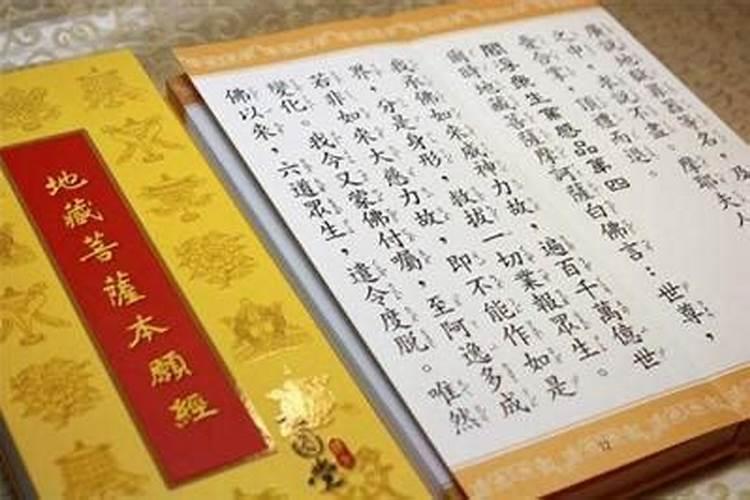 地藏菩薩本願經
廣說地獄罪器等名，及
之中，求說不盡。摩耶夫人
憂合掌，頂禮而退。
閻浮眾生業感品第四
爾時地藏菩薩摩訶薩白佛言：世尊，
我承佛如來威神力故，遍百千萬億世
界，分是身形，救拔一切業報眾生。
若非如來大慈力故，即不能作如是
變化。我今又蒙佛付囑，至阿逸多成
佛以來，六道眾生，遣令度脫。唯然